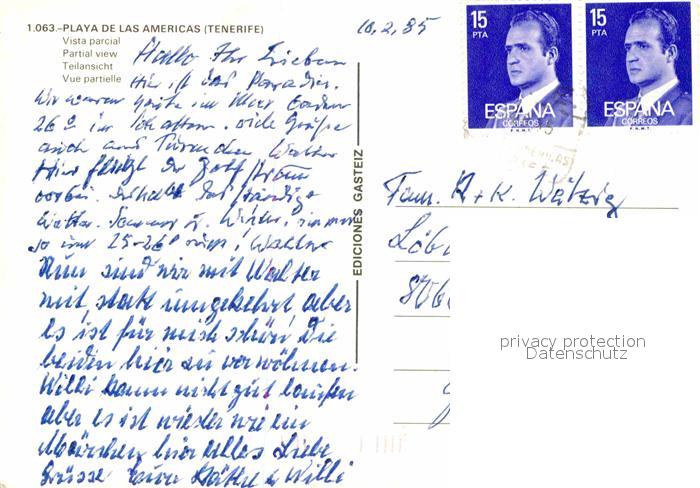 1.063.–PLAYA DE LAS AMERICAS (TENERIFE)
Vista parcial
Partial view
Teilansicht
Vue partielle
10.2.85
Hallo Ihr Lieben
Hier ist das Paradies.
Wir waren heute im Meer baden
26° im Schatten. viele Grüße
auch aus
Hier fließt der Golfstrom
vorbei. deshalb das ständige
Wetter. Sommer u. Winter, immer
so um 25-26° rum! Walter
Nun sind wir mit Walter
mit, statt umgekehrt, aber
es ist für mich schön, die
beiden hier zu verwöhnen.
Willi kann nicht gut laufen
aber es ist wieder wie ein
Märchen hier alles Liebe
Grüsse Eure Käthe & Willi
EDICIONES GASTEIZ
15
PTA
ESPAÑA
CORREOS
F.N.M.T.
15
PTA
ESPAÑA
CORREOS
F.N.M.T.
Fam. R + K. Wätzig
Löb
privacy protection
Datenschutz